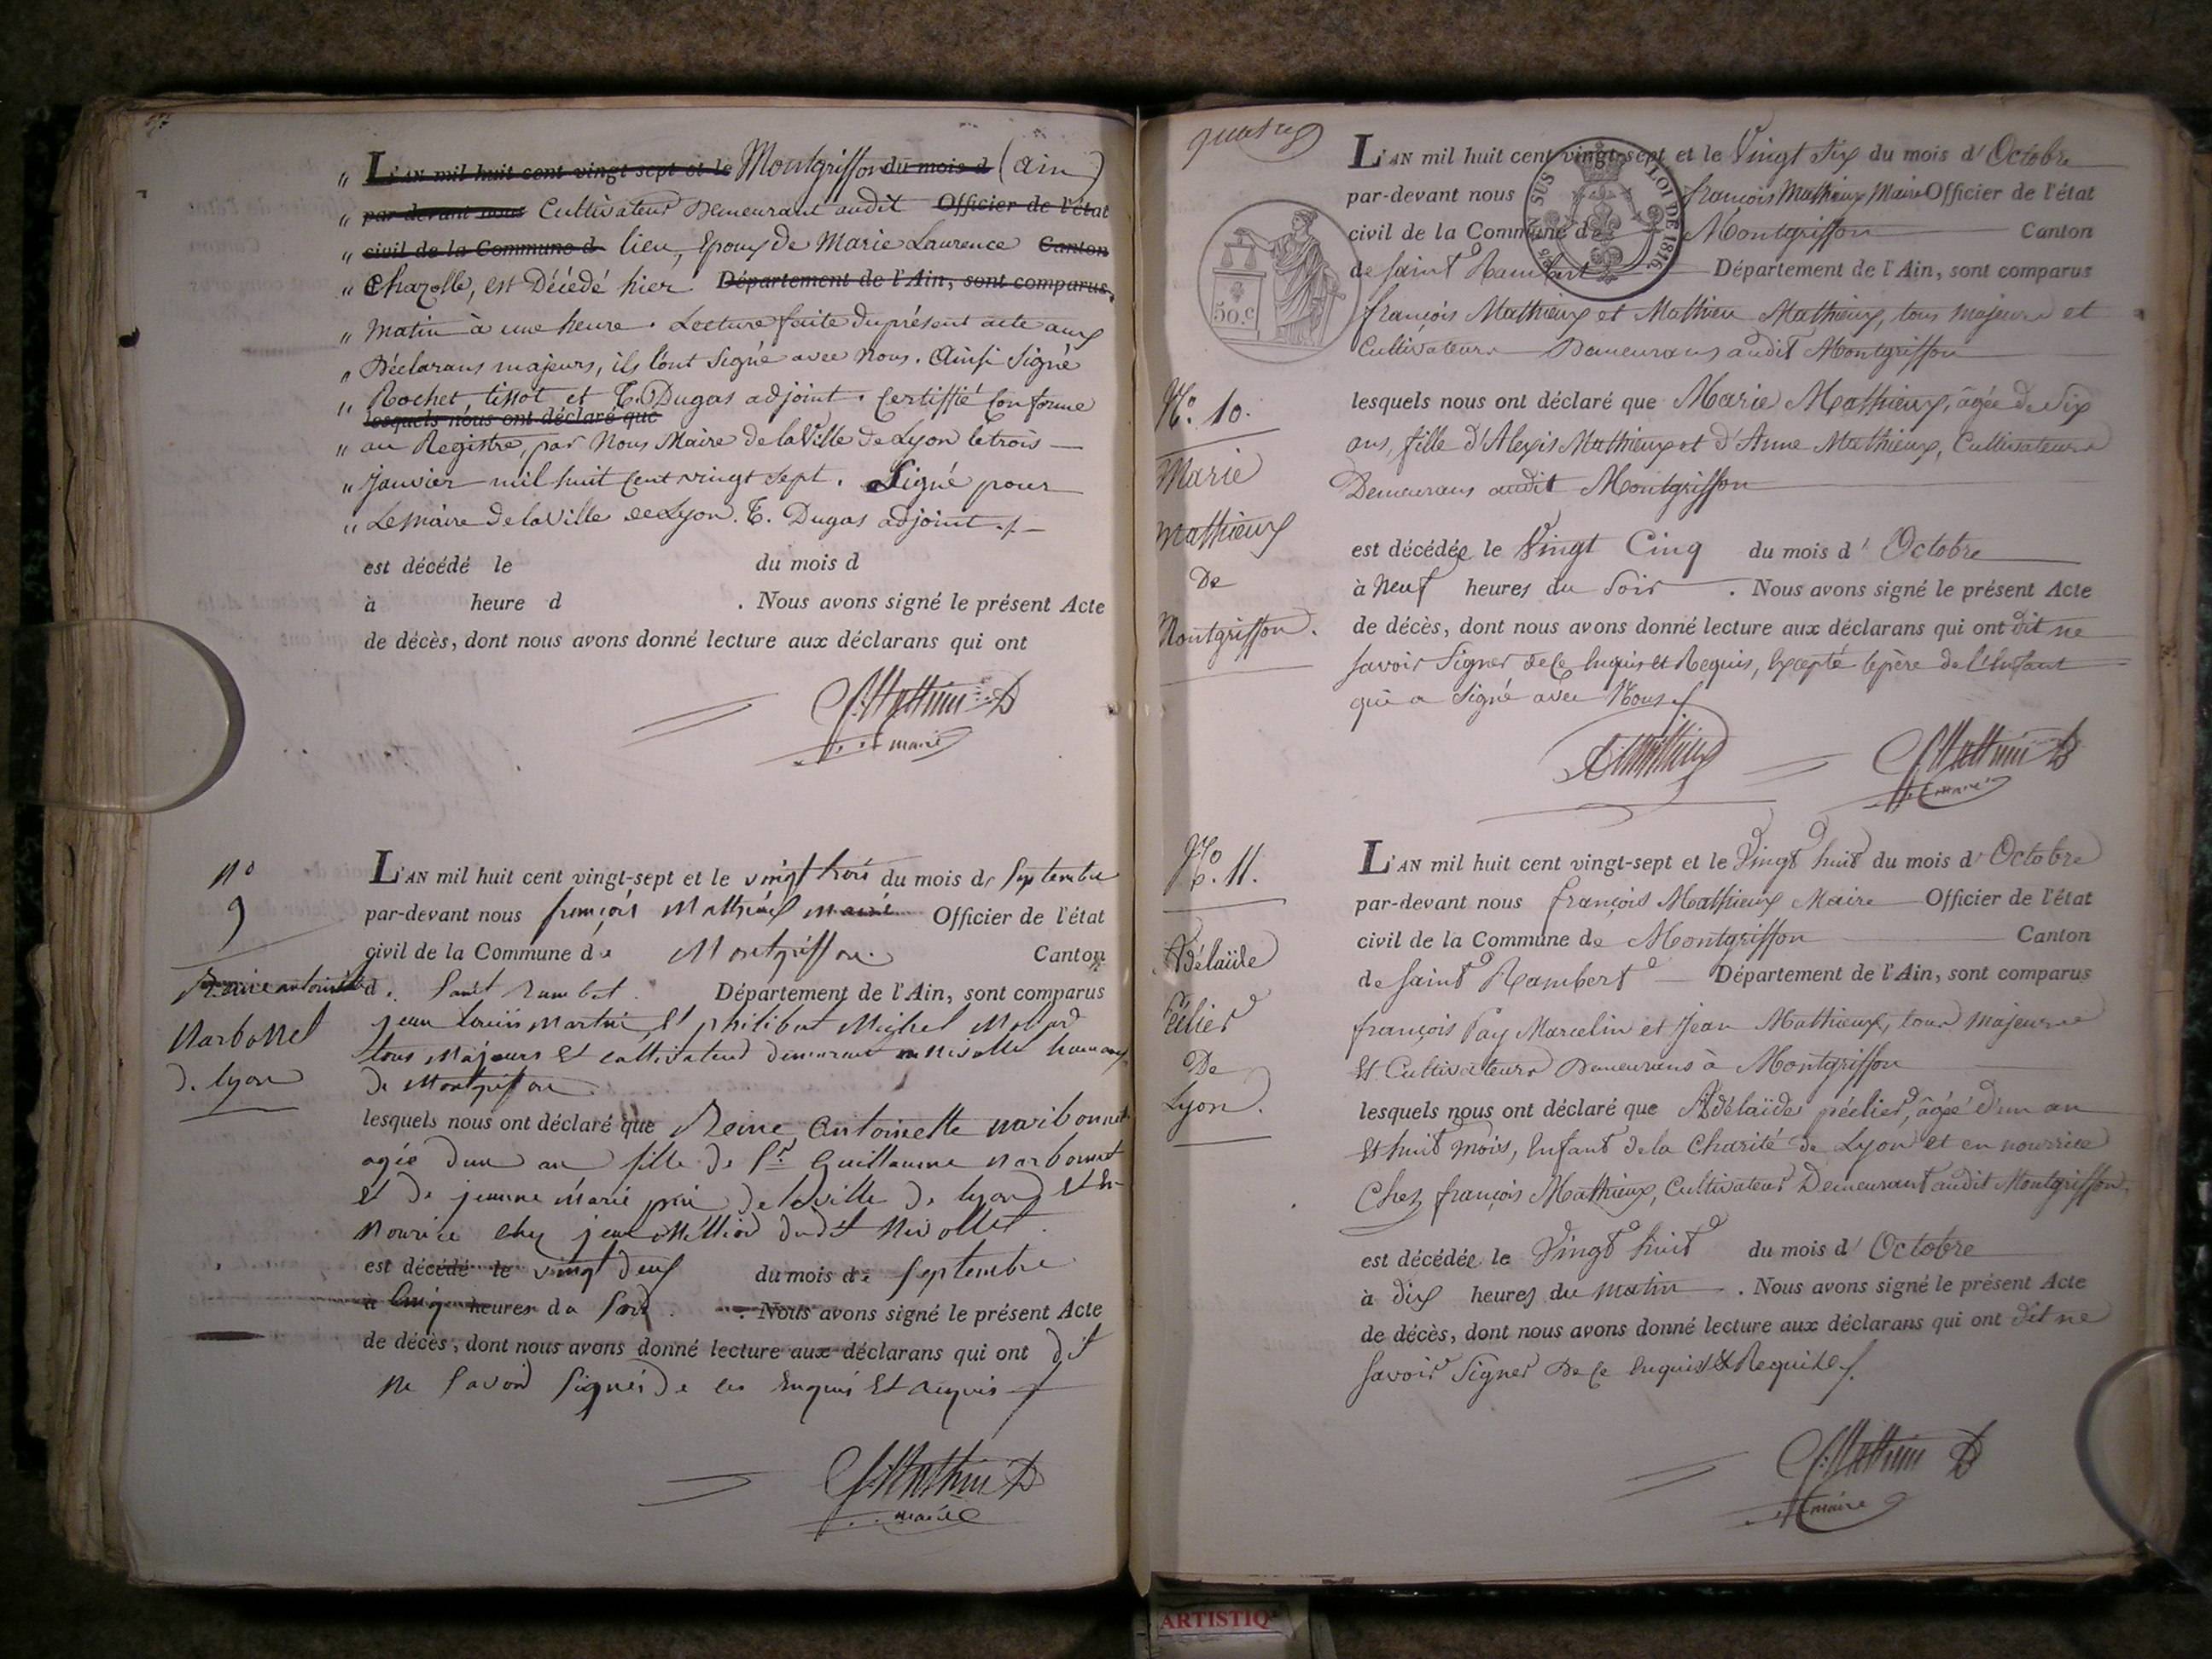 " L'AN mil huit cent vingt sept et le Montgriffon du mois d (ain)
" par-devant nous Cultivateur Demeurant audit Officier de l'état
" civil de la Commune d lieu, Epoux de Marie Laurence Canton
" Chazelle, est Décédé hier Département de l'Ain, sont comparus,
" Matin à une heure. Lecture faite du présent acte aux
" Déclarans majeurs, ils l'ont Signé avec Nous. Ainsi Signé
" Rochet tissot et T. Dugas adjoint. Certiffié Conforme
lesquels nous ont déclaré que
" au Registre, par Nous Maire de la Ville de Lyon le trois
" Janvier mil huit Cent vingt Sept. Signé pour
" Le maire de la Ville de Lyon. T. Dugas adjoint
est décédé le du mois d
à heure d . Nous avons signé le présent Acte
de décès, dont nous avons donné lecture aux déclarans qui ont
maire
n° 9
Reine antoinette
Narbonnet
de lyon
L'AN mil huit cent vingt-sept et le vingt trois du mois de Septembre
par-devant nous françois Mathieux maire Officier de l'état
civil de la Commune de Montgriffon. Canton
de Saint Rambert. Département de l'Ain, sont comparus
jean louis martin et philibert Michel
tous Majours Et cultivateur demeurant
de Montgriffon
lesquels nous ont déclaré que Reine Antoinette narbonnet
agée dun an fille de Sr. Guillaume narbonnet
et de jeanne marie de la ville de lyon et en
Nourice chez jean dudit Nivollet
est décédé le vingt deux du mois de Septembre
à Cinq heures du Soir. . Nous avons signé le présent Acte
de décès, dont nous avons donné lecture aux déclarans qui ont dit
ne Savoir Signer de ces Enquis Et requis
maire
quatre
SUS LOI DE 1816
50.c
N.° 10.
Marie
Mathieux
De
Montgriffon.
L'AN mil huit cent vingt-sept et le Vingt Six du mois d'Octobre
par-devant nous françois Mathieux Maire Officier de l'état
civil de la Commune de Montgriffon Canton
de Saint Rambert Département de l'Ain, sont comparus
françois Mathieux et Mathieu Mathieux, tous majeurs et
Cultivateurs Demeurans audit Montgriffon
lesquels nous ont déclaré que Marie Mathieux, âgée de Six
ans, fille d'Alexis Mathieux et d'Anne Mathieux, Cultivateurs
Demeurans audit Montgriffon
est décédée le Vingt Cinq du mois d'Octobre
à Neuf heures du Soir . Nous avons signé le présent Acte
de décès, dont nous avons donné lecture aux déclarans qui ont dit ne
Savoir Signer de Ce Enquis et Requis, Excepté le père de l'Enfant
qui a Signé avec Nous
maire
N.° 11.
Adélaïde
Pélier
De
Lyon.
L'AN mil huit cent vingt-sept et le Vingt huit du mois d'Octobre
par-devant nous françois Mathieux Maire Officier de l'état
civil de la Commune de Montgriffon Canton
de Saint Rambert Département de l'Ain, sont comparus
françois Pay Marcelin et Jean Mathieux, tous majeurs
Et Cultivateurs Demeurans à Montgriffon
lesquels nous ont déclaré que Adélaïde pélier, âgée d'un an
Et huit Mois, Enfant de la Charité de Lyon et en nourrice
Chez françois Mathieux, Cultivateur Demeurant audit Montgriffon.
est décédée le Vingt huit du mois d'Octobre
à dix heures du matin . Nous avons signé le présent Acte
de décès, dont nous avons donné lecture aux déclarans qui ont dit ne
Savoir Signer De Ce Enquis et Requis
maire
ARTISTIQ